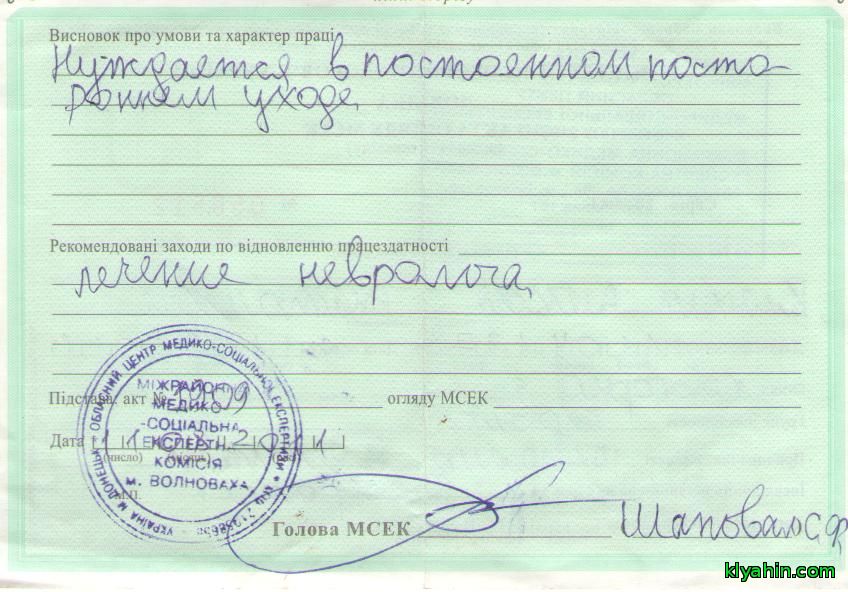 Висновок про умови та характер праці
Нуждается в постоенном посто-
роннем уходе
Рекомендовані заходи по відновленню працездатності
лечение невролога
Підстава: акт № огляду МСЕК
Дата 11 03 2011
(число) (місяць) (рік)
М.П.
Голова МСЕК
Шаповал С Ф
УКРАЇНА М.ДОНЕЦЬК ОБЛАСНИЙ ЦЕНТР МЕДИКО-СОЦІАЛЬНОЇ ЕКСПЕРТИЗИ
МІЖРАЙОННА
МЕДИКО
-СОЦІАЛЬНА
ЕКСПЕРТНА
КОМІСІЯ
м. ВОЛНОВАХА
klyahin.com